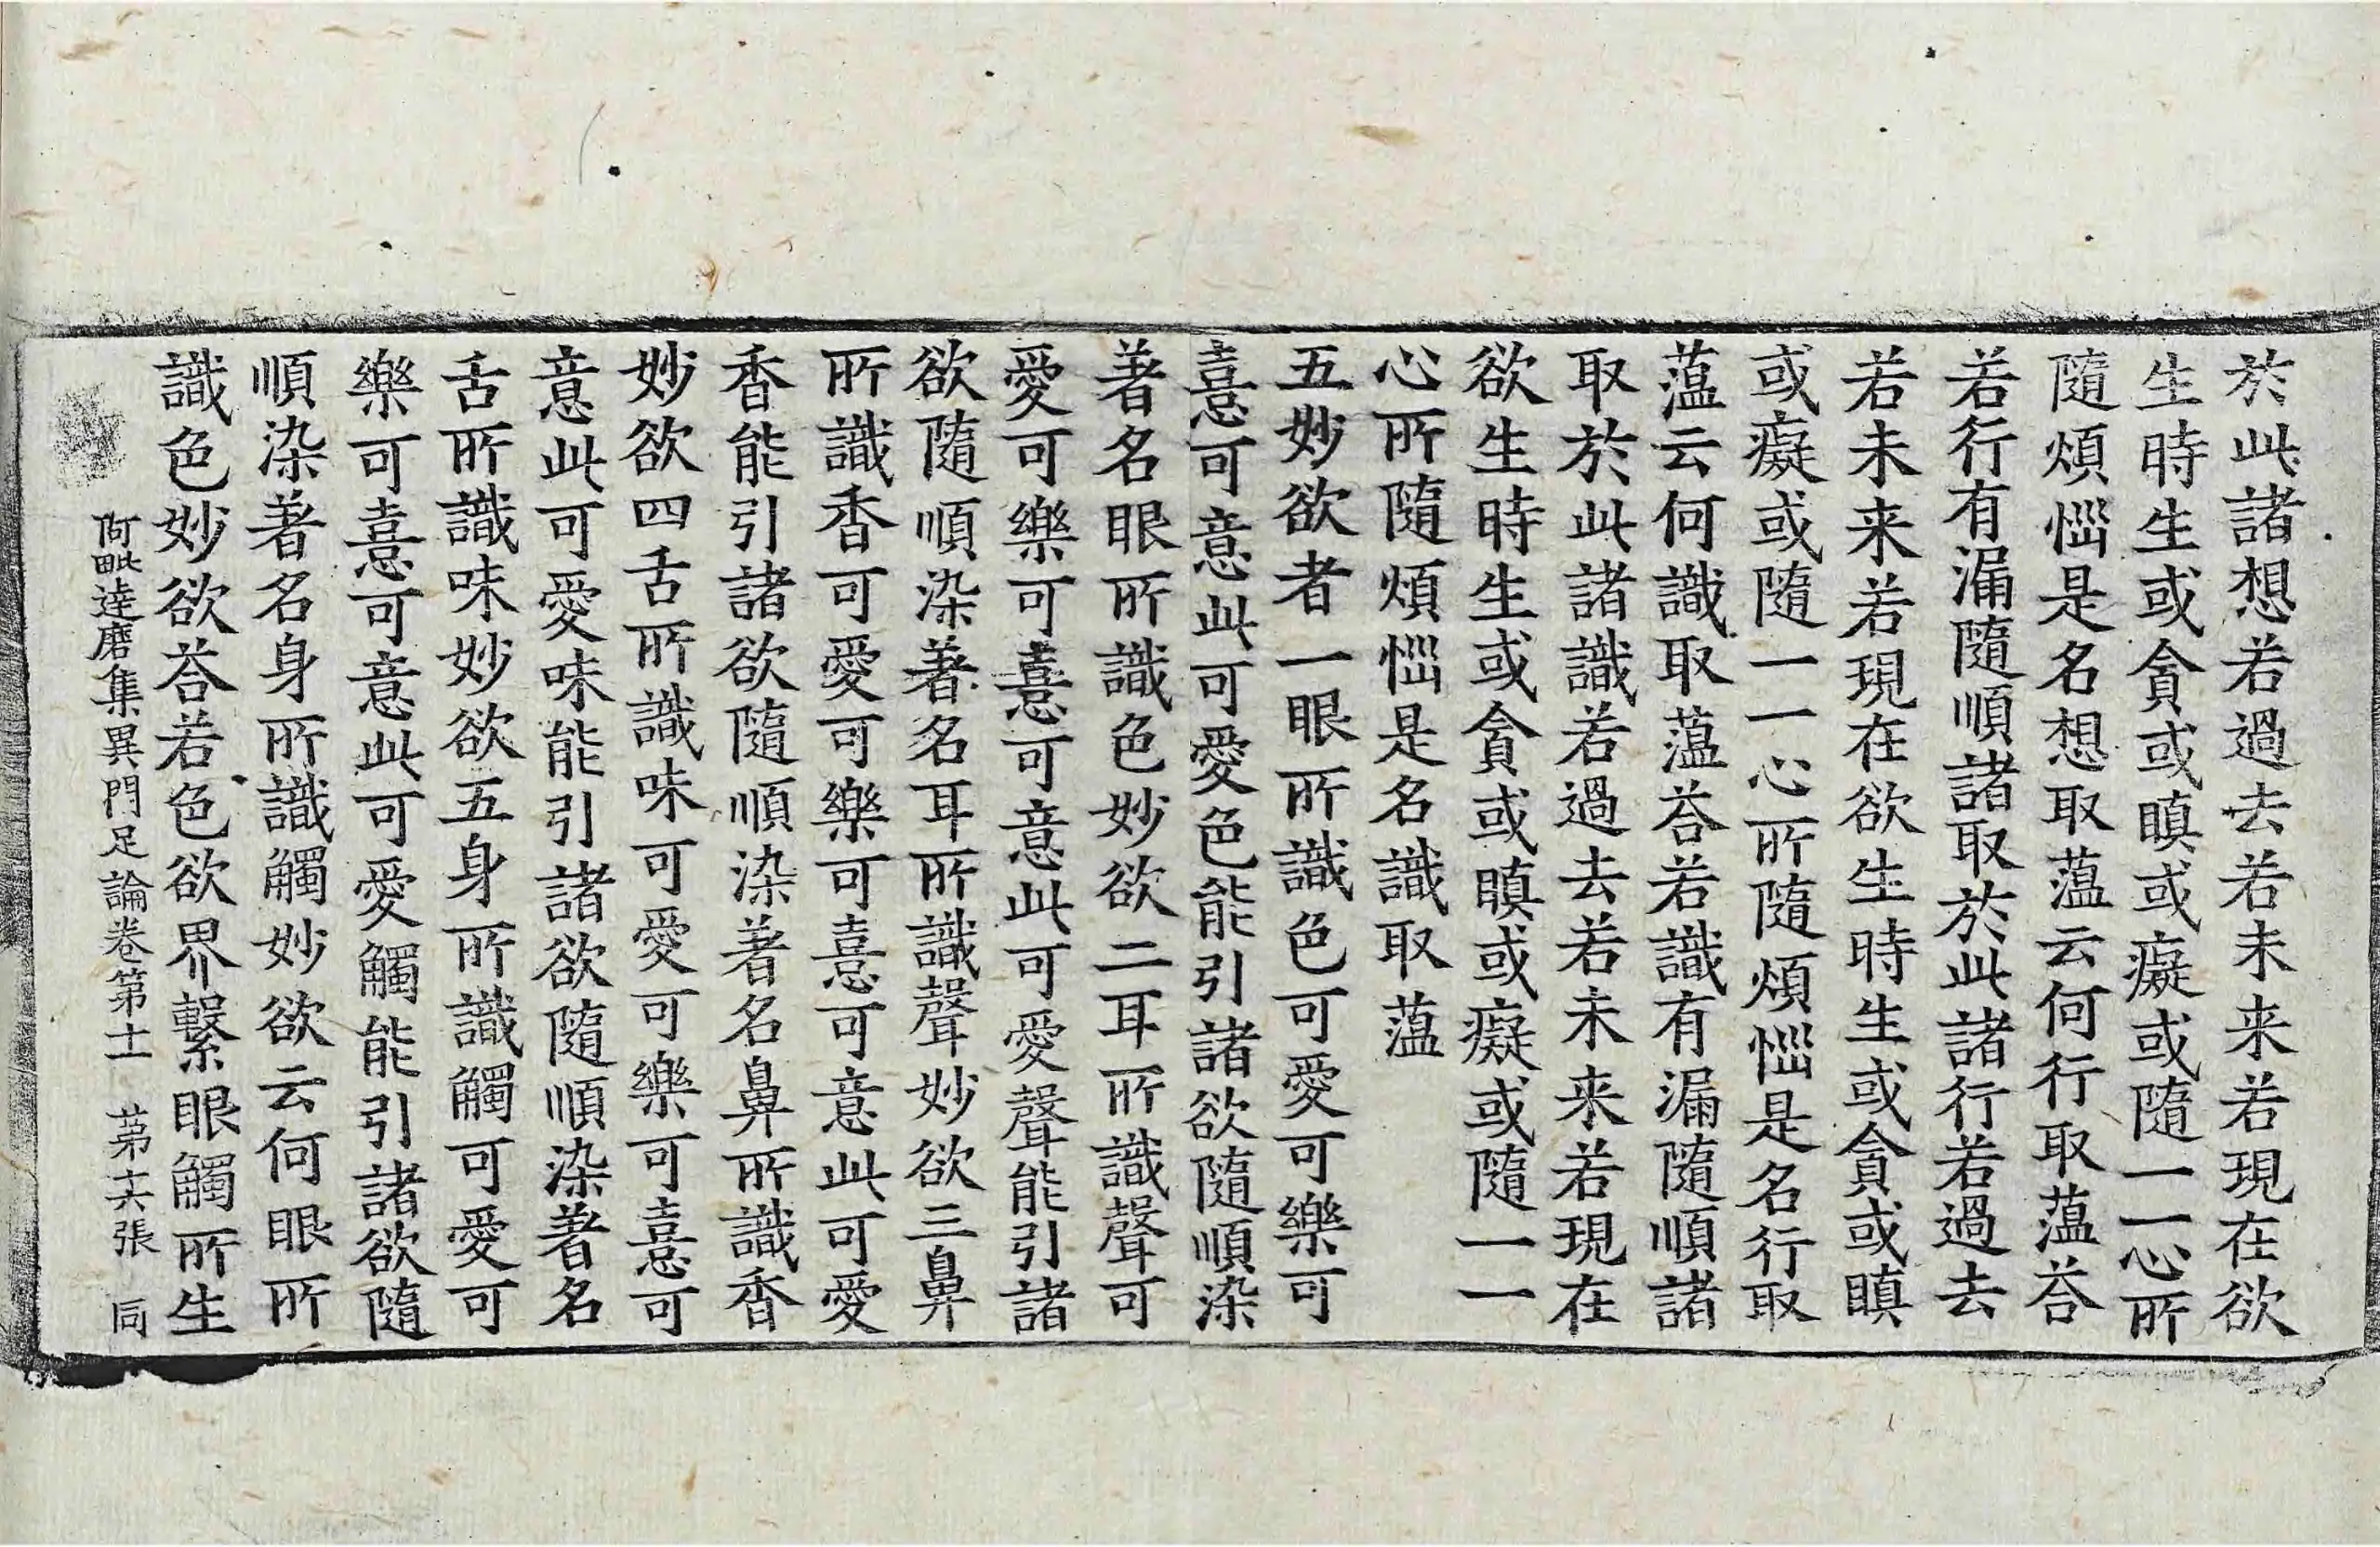 於此諸想若過去若未来若現在欲
生時生或貪或瞋或癡或隨一一心所
隨煩惱是名想取薀云何行取薀荅
若行有漏隨順諸取於此諸行若過去
若未来若現在欲生時生或貪或瞋
或癡或隨一一心所隨煩惱是名行取
薀云何識取薀荅若識有漏隨順諸
取於此諸識若過去若未来若現在
欲生時生或貪或瞋或癡或隨一一
心所隨煩惱是名識取薀
五妙欲者一眼所識色可愛可樂可
憙可意此可愛色能引諸欲隨順染
著名眼所識色妙欲二耳所識聲可
愛可樂可憙可意此可愛聲能引諸
欲隨順染著名耳所識聲妙欲三鼻
所識香可愛可樂可憙可意此可愛
香能引諸欲隨順染著名鼻所識香
妙欲四舌所識味可愛可樂可憙可
意此可愛味能引諸欲隨順染著名
舌所識味妙欲五身所識觸可愛可
樂可憙可意此可愛觸能引諸欲隨
順染著名身所識觸妙欲云何眼所
識色妙欲荅若色欲界繫眼觸所生
阿毗達磨集異門足論卷第十一 苐十六張 同